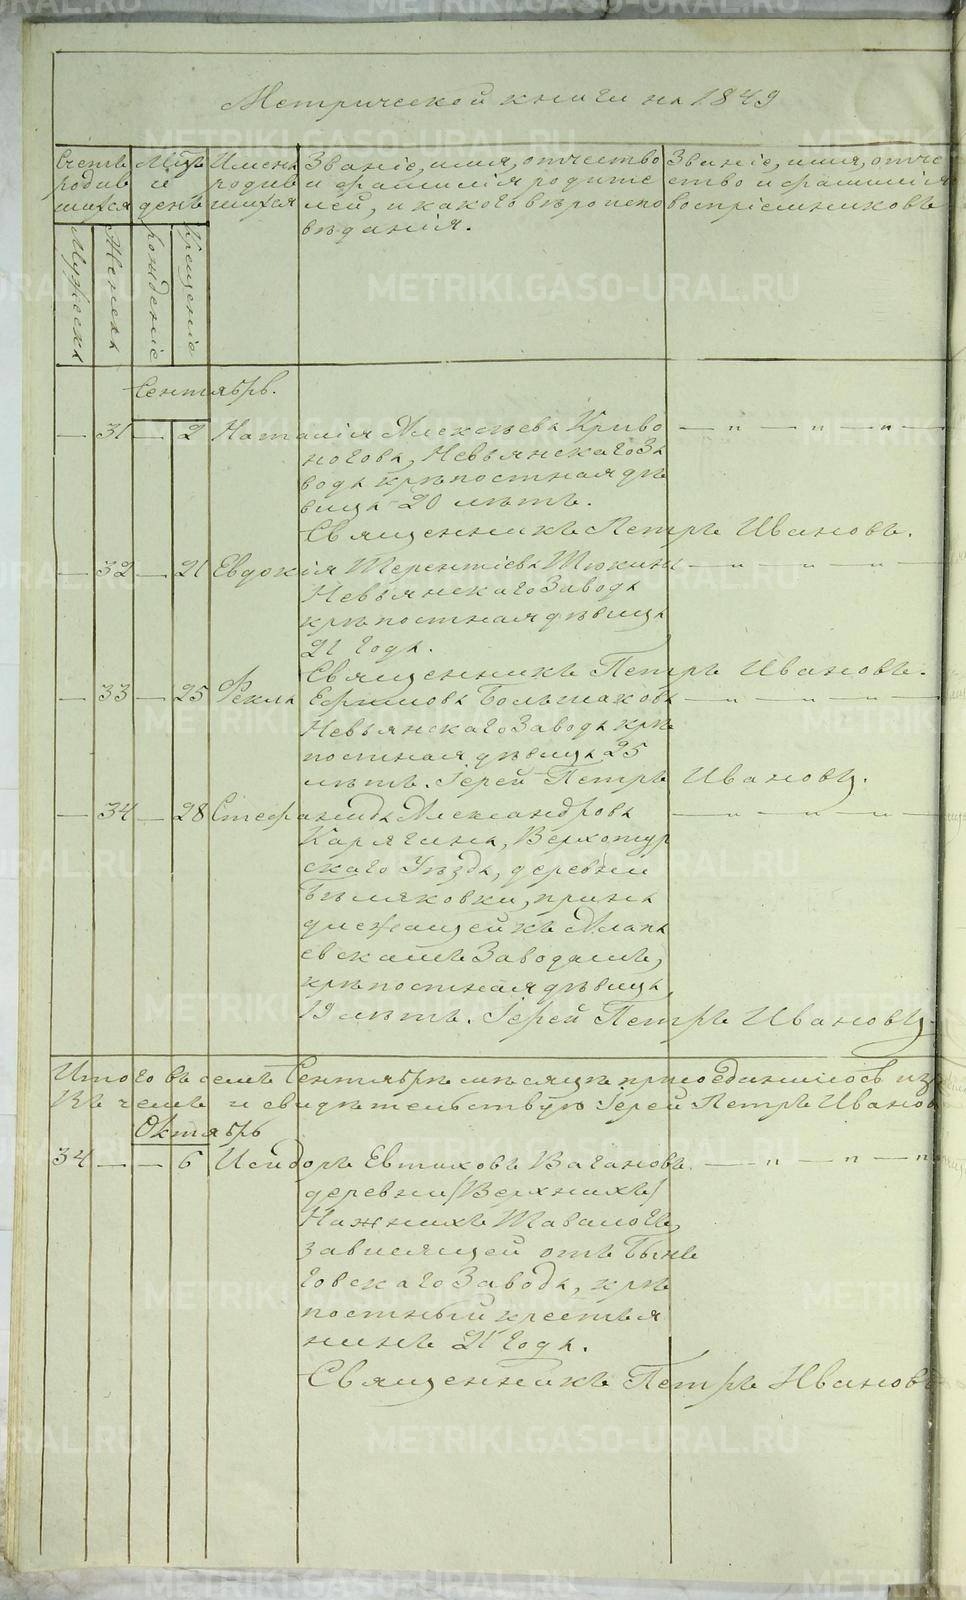 Метрической книги на 1849
Счетъ родив шихся
Мужеска
Женска
Мцъ и день
рожденіе
Крещеніе
Имена родив шихся
Званіе, имя, отчество
и фамилія родите
лей, и какого вѣроиспо
вѣданія.
Званіе, имя, отче
ство и фамилія
воспріемниковъ
Сентябрь.
— 31 — 2 Наталія Алексѣева Криво — " — " — " —
ногова, Невьянскаго За
вода крѣпостная дѣ
вица 20 лѣтъ.
Священникъ Петръ Ивановъ.
— 32 — 21 Евдокія Терентіева Тюкина — " — " — " —
Невьянскаго Завода
крѣпостная дѣвица
21 года.
Священникъ Петръ Ивановъ.
— 33 — 25 Фекла Ефимова Большакова — " — " — " —
Невьянскаго Завода крѣ
постная дѣвица 25
лѣтъ. Іерей Петръ Ивановъ.
— 34 — 28 Стефанида Александрова — " — " — " —
Карягина, Верхотур
скаго Уѣзда, деревни
Бѣляковки, прина
длежащей къ Алапа
евскимъ Заводамъ,
крѣпостная дѣвица,
19 лѣтъ. Іерей Петръ Ивановъ
Итого въ семъ Сентябрѣ мѣсяцѣ присоединилось
Въ чемъ и свидѣтельствую Іерей Петръ Иванов
Октябрь
34 — — 6 Исидоръ Евтиховъ Вагановъ. — " — " — "
деревни /Верхнихъ/
Нажнихъ Тавологъ,
зависящей отъ Бын
говскаго Завода, крѣ
постный крестья
нинъ 21 года.
Священникъ Петръ Ивановъ
METRIKI.GASO-URAL.RU